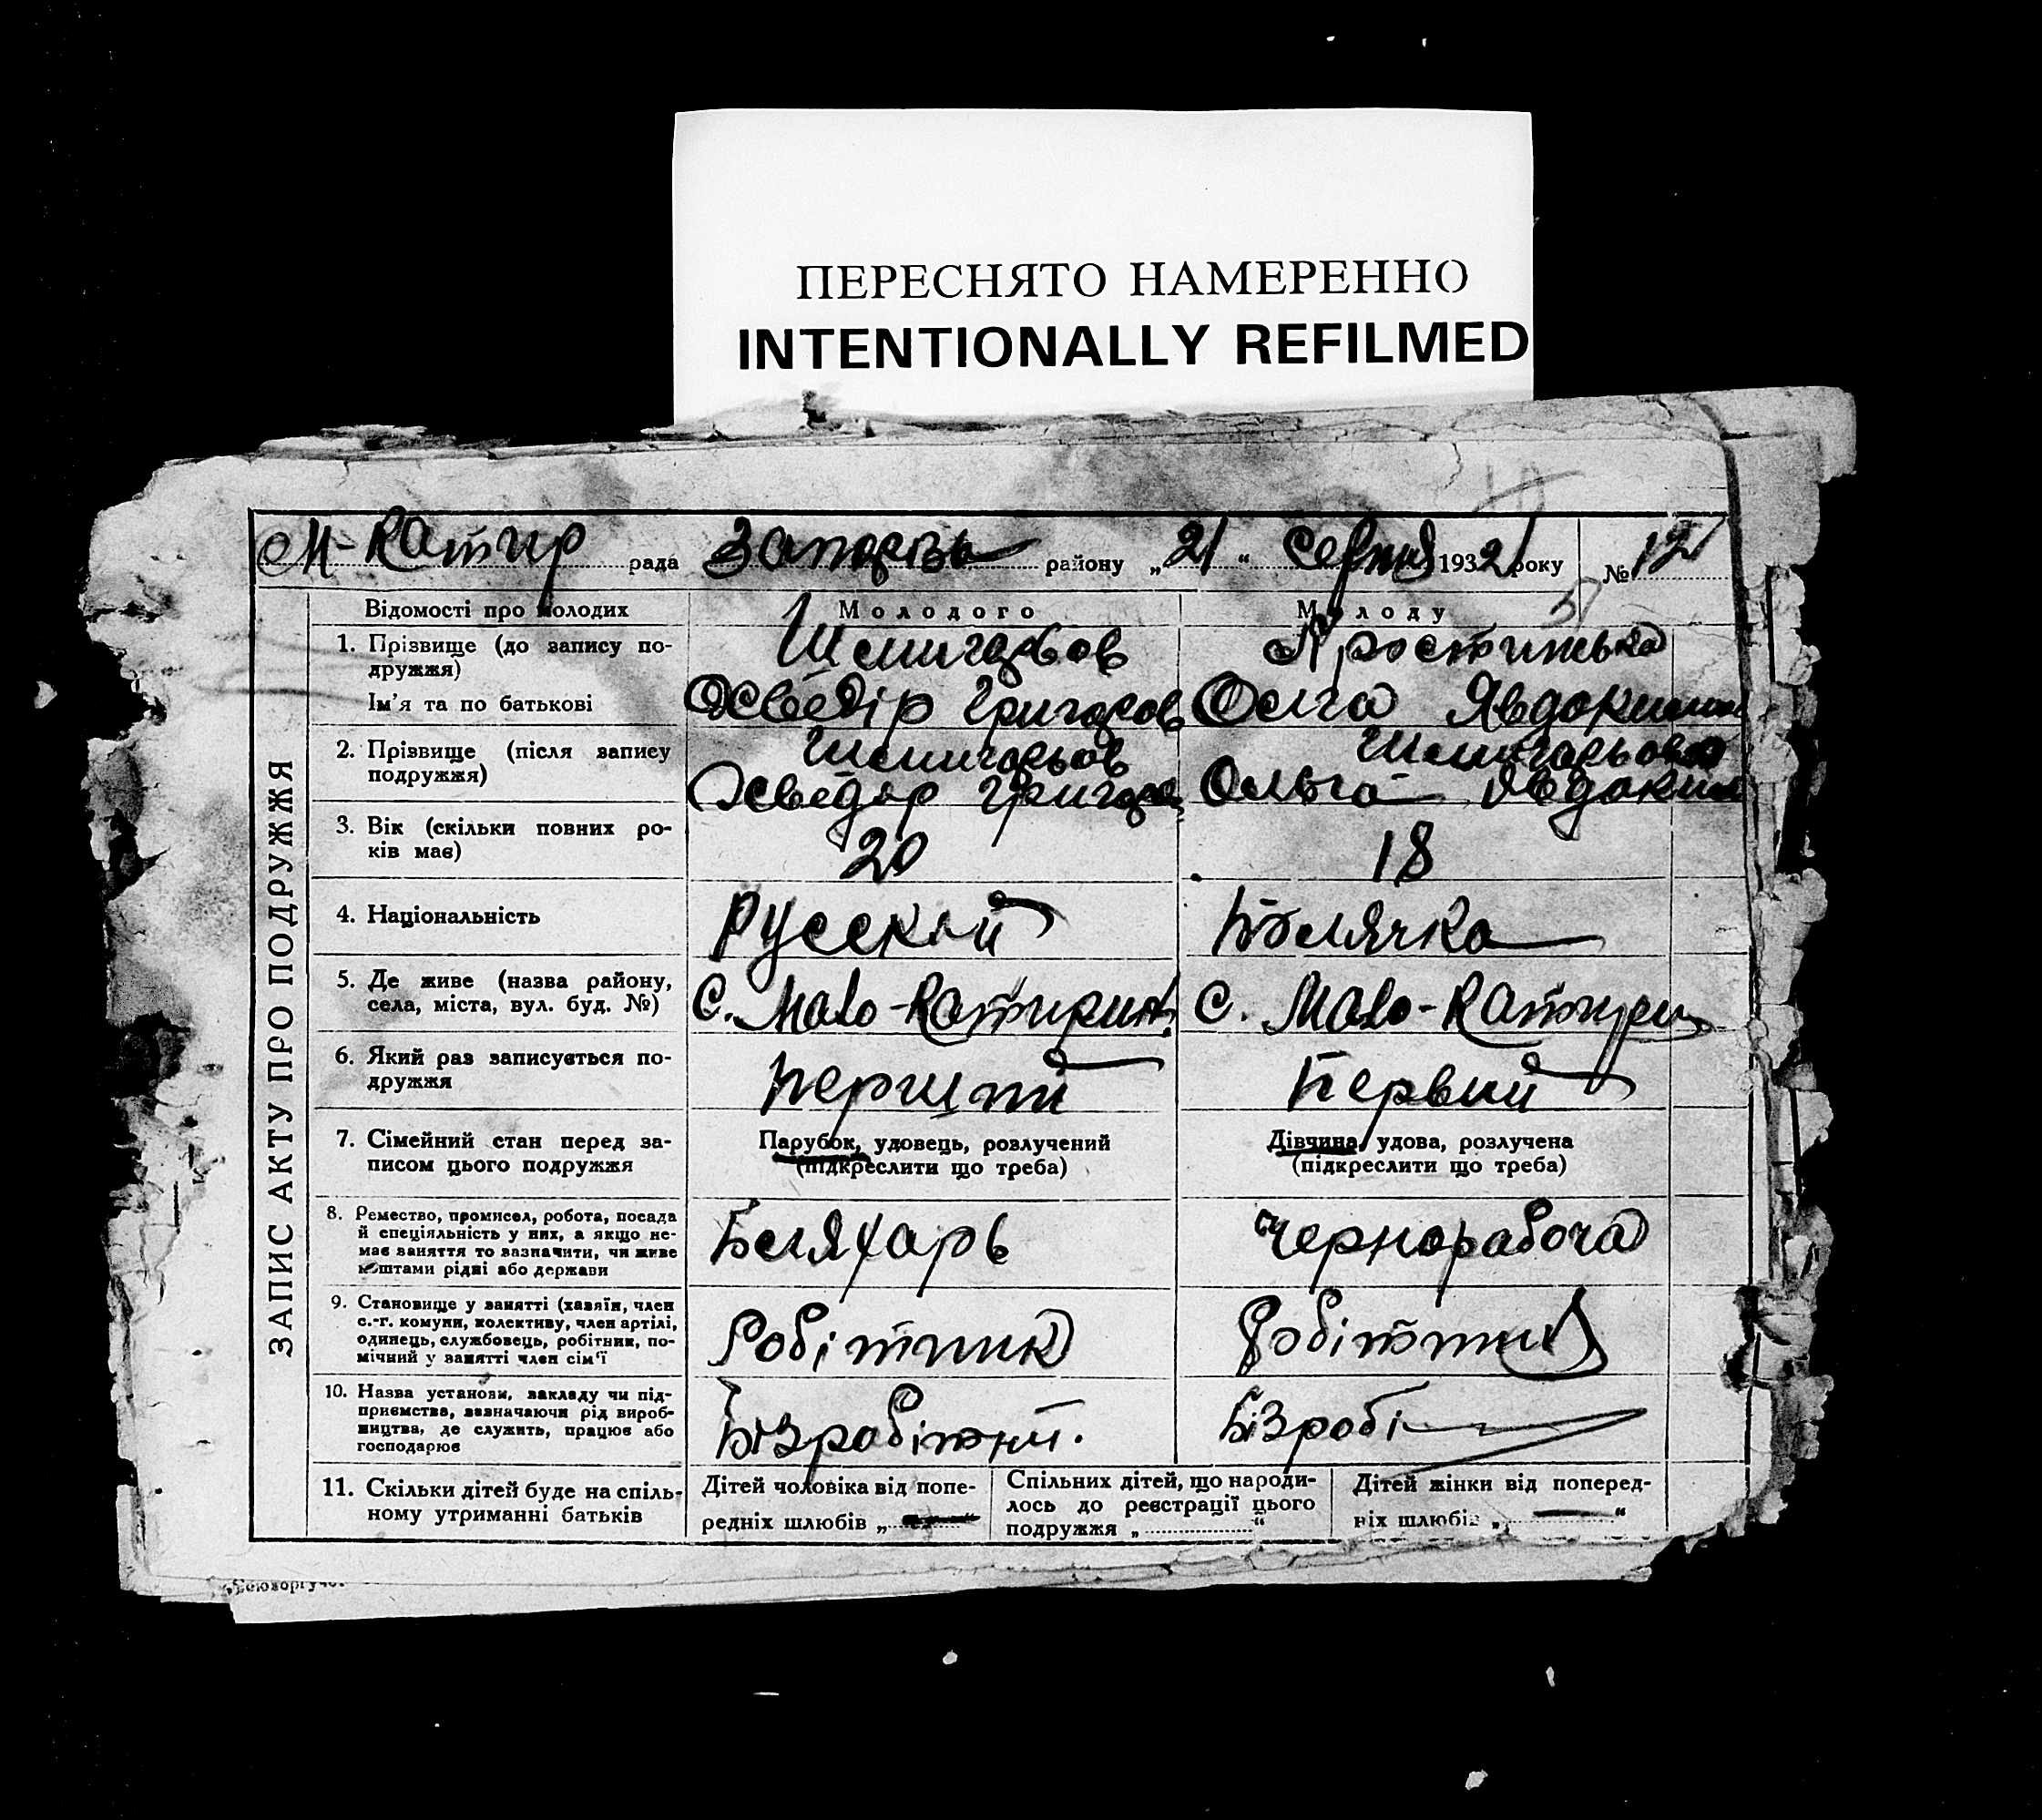 ПЕРЕСНЯТО НАМЕРЕННО
INTENTIONALLY REFILMED
М-Катир рада район​у „21“ Серпня 1932 року № 12
ЗАПИС АКТУ ПРО ПОДРУЖЖЯ
Відомості про молодих Молодого Молоду
1. Прізвище (до запису по-
дружжя)
Ім'я та по батькові Григоров Олга Явдоким
2. Прізвище (після запису
подружжя)
Григор Ольга Явдоким
3. Вік (скільки повних ро-
ків має) 20 18
4. Національність Русский Полячка
5. Де живе (назва району,
села, міста, вул. буд. №) С. Мало-Катирин. С. Мало-Катирин
6. Який раз записується по-
дружжя Перший Первий
7. Сімейний стан перед за-
писом цього подружжя
Парубок, удовець, розлучений
(підкреслити що треба)
Дівчина, удова, розлучена
(підкреслити що треба)
8. Ремество, промисел, робота, посада
й спеціяльність у них, а якщо не-
має заняття то зазначити, чи живе
коштами рідні або держави
чернорабоча
9. Становище у занятті (хазяїн, член
с.-г. комуни, колективу, член артілі,
одинець, службовець, робітник, по-
мічний у занятті член сім'ї
Робітник Робітник
10. Назва установи, закладу чи під-
приємства, зазначаючи рід вироб-
ництва, де служить, працює або
господарює
Бізробітний. Бізробі
11. Скільки дітей буде на спіль-
ному утриманні батьків
Дітей чоловіка від попе-
редніх шлюбів „ “
Спільних дітей, що народи-
лось до реєстрації цього
подружжя „ “
Дітей жінки від поперед-
ніх шлюбів „ “